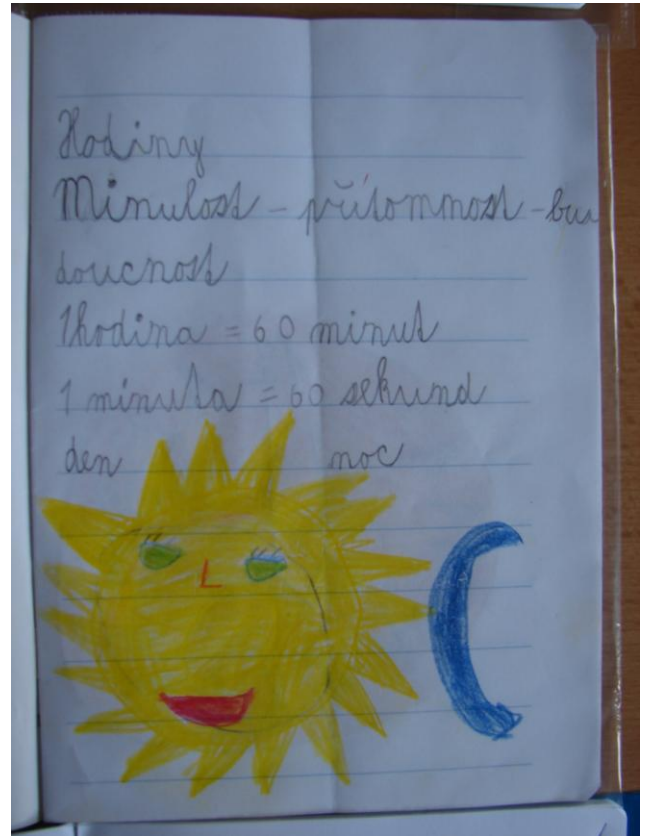 Hodiny
Minulost - přítomnost - bu
doucnost
1hodina = 60 minut
1 minuta = 60 sekund
den noc